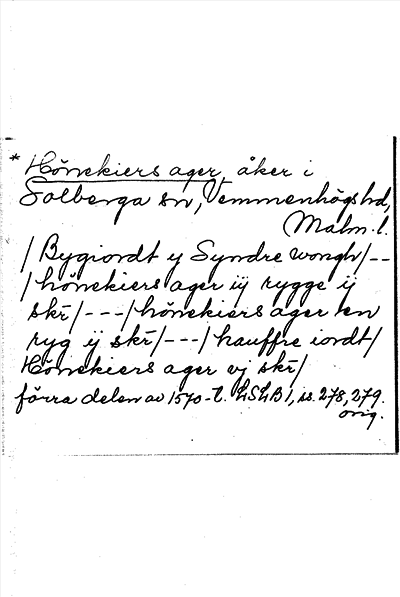 * Hönekiers ager, åker i
Solberga sn, Vemmenhögshd,
Malm. l.
/ Bygiordt y Syndre wongh/ --
/ hönekiers ager iij rygge ij
skr̄/ --- / hönekiers ager en
ryg ij skr̄/ --- / hauffre iordt/
Hönekiers ager vj skr̄/
förra delen av 1570-t. LSLB 1, ss. 278, 279.
orig.